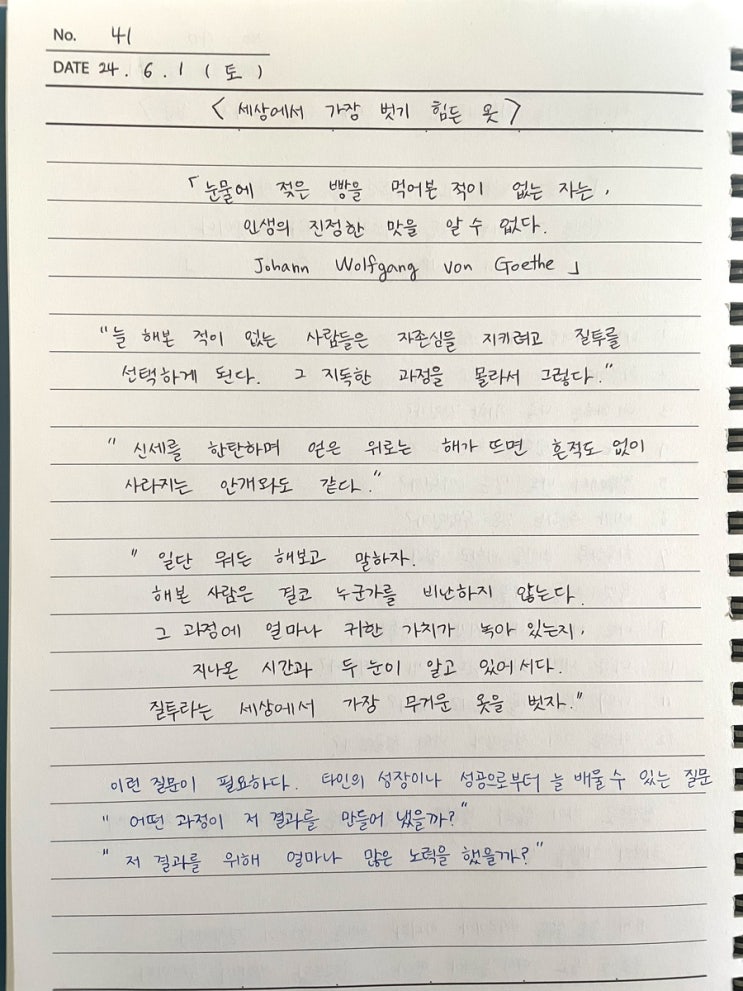 No. 41
DATE 24. 6. 1 (토)
<세상에서 가장 벗기 힘든 옷>
「눈물에 젖은 빵을 먹어본 적이 없는 자는,
인생의 진정한 맛을 알 수 없다.
Johann Wolfgang von Goethe」
"늘 해본 적이 없는 사람들은 자존심을 지키려고 질투를
선택하게 된다. 그 지독한 과정을 몰라서 그렇다."
"신세를 한탄하며 얻은 위로는 해가 뜨면 흔적도 없이
사라지는 안개와도 같다."
"일단 뭐든 해보고 말하자.
해본 사람은 결코 누군가를 비난하지 않는다.
그 과정에 얼마나 귀한 가치가 녹아 있는지,
지나온 시간과 두 눈이 알고 있어서다.
질투라는 세상에서 가장 무거운 옷을 벗자."
이런 질문이 필요하다. 타인의 성장이나 성공으로부터 늘 배울 수 있는 질문
"어떤 과정이 저 결과를 만들어 냈을까?"
"저 결과를 위해 얼마나 많은 노력을 했을까?"